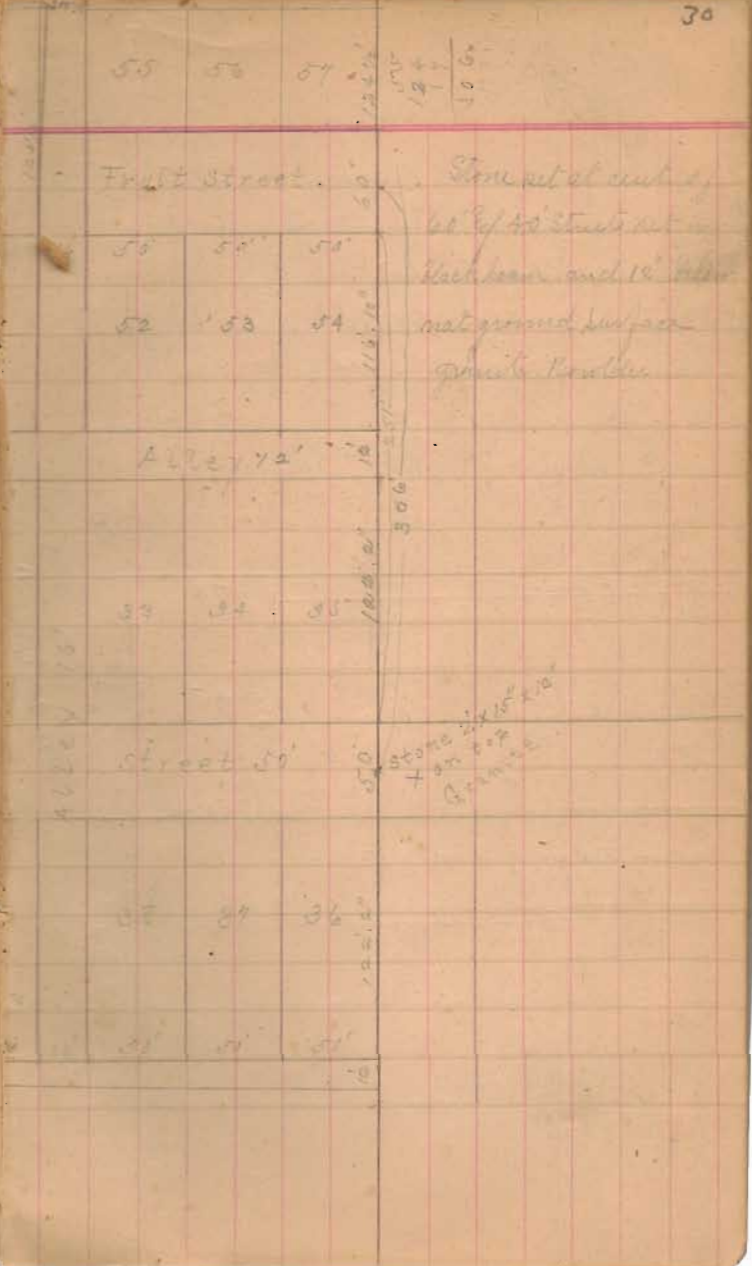 30
55 56 57
Fruit Street 60'
Stone set at cent of
60' & 40' Streets set in
black loam and 12" below
nat ground surface
granite Boulder
50' 50' 50'
52 53 54
116' 10"
Alley 12' 12
306'
33 34 35
122' 2"
Alley 16'
Street 50' 50'
Stone 2' x 15" x 12"
+ on top
38 37 36
122' 2"
50' 50' 50'
12'